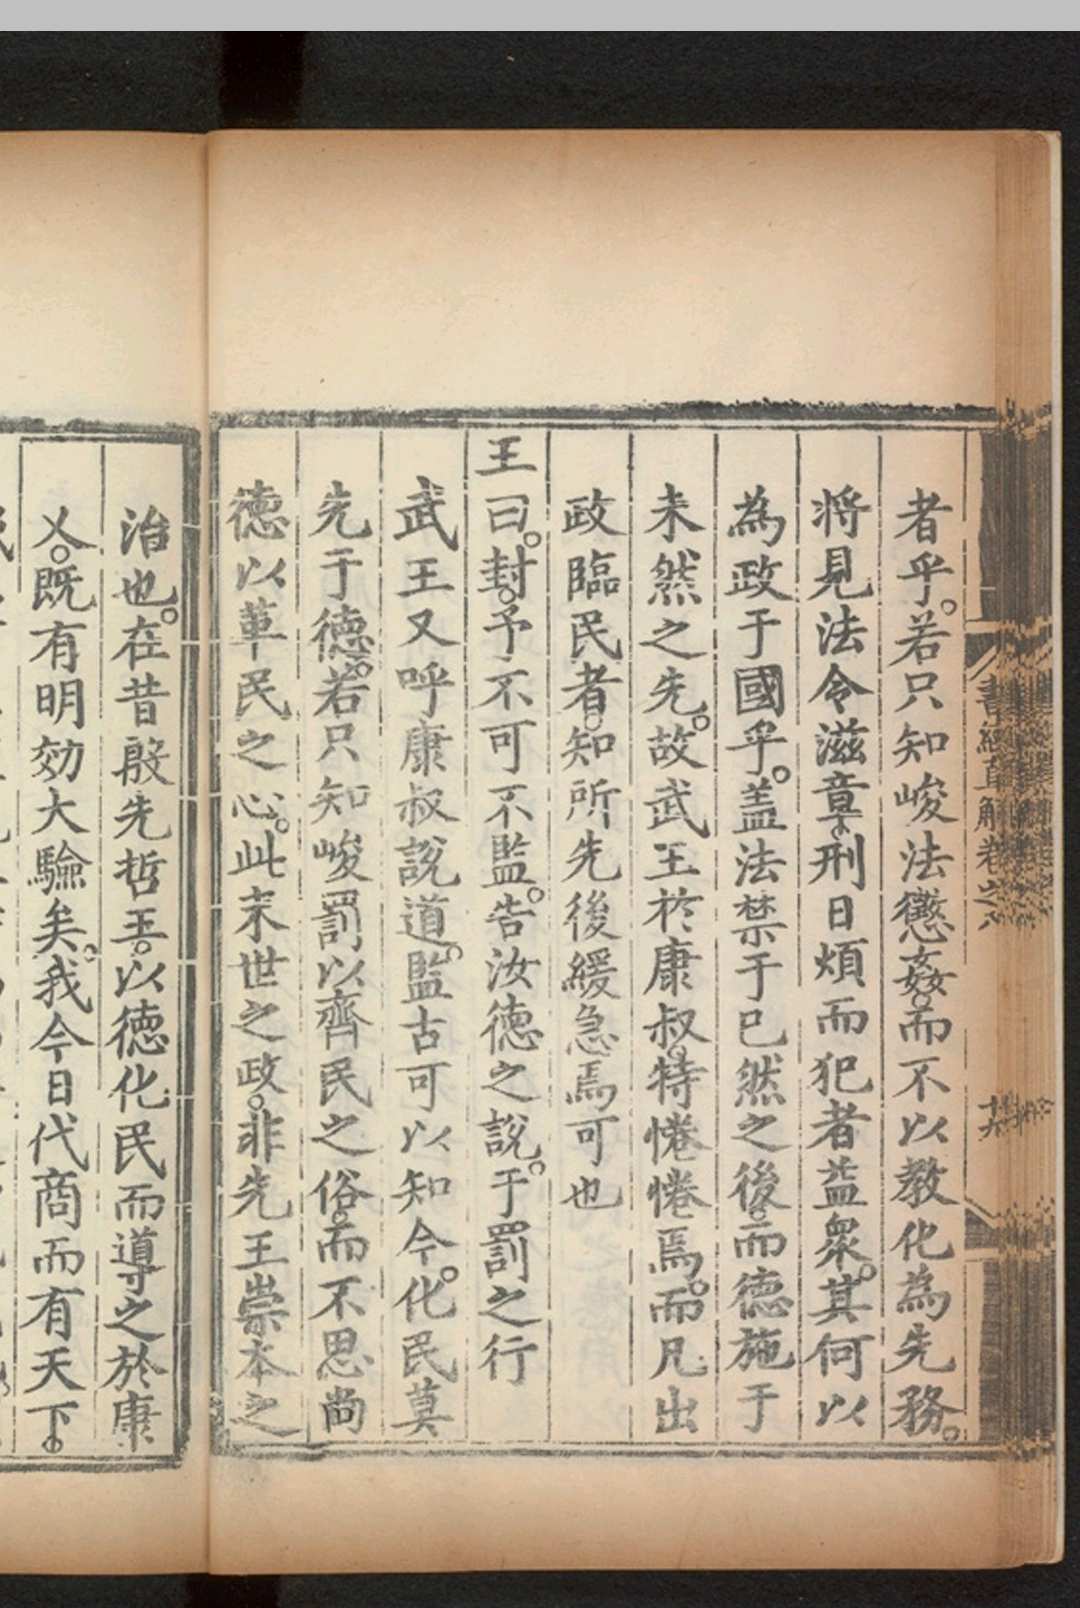 書經直解卷之八
十六
者乎。若只知峻法懲姦。而不以教化為先務。
將見法令滋章。刑日煩而犯者益眾。其何以
為政于國乎。盖法禁于已然之後。而德施于
未然之先。故武王於康叔。特惓惓焉。而凡出
政臨民者。知所先後緩急焉可也
王曰。封。予不可不監。告汝德之說。于罰之行
武王又呼康叔說道。監古可以知今。化民莫
先于德。若只知峻罰以齊民之俗。而不思尚
德以革民之心。此末世之政。非先王崇本之
治也。在昔殷先哲王。以德化民而導之於康
乂。既有明効大驗矣。我今日代商而有天下。